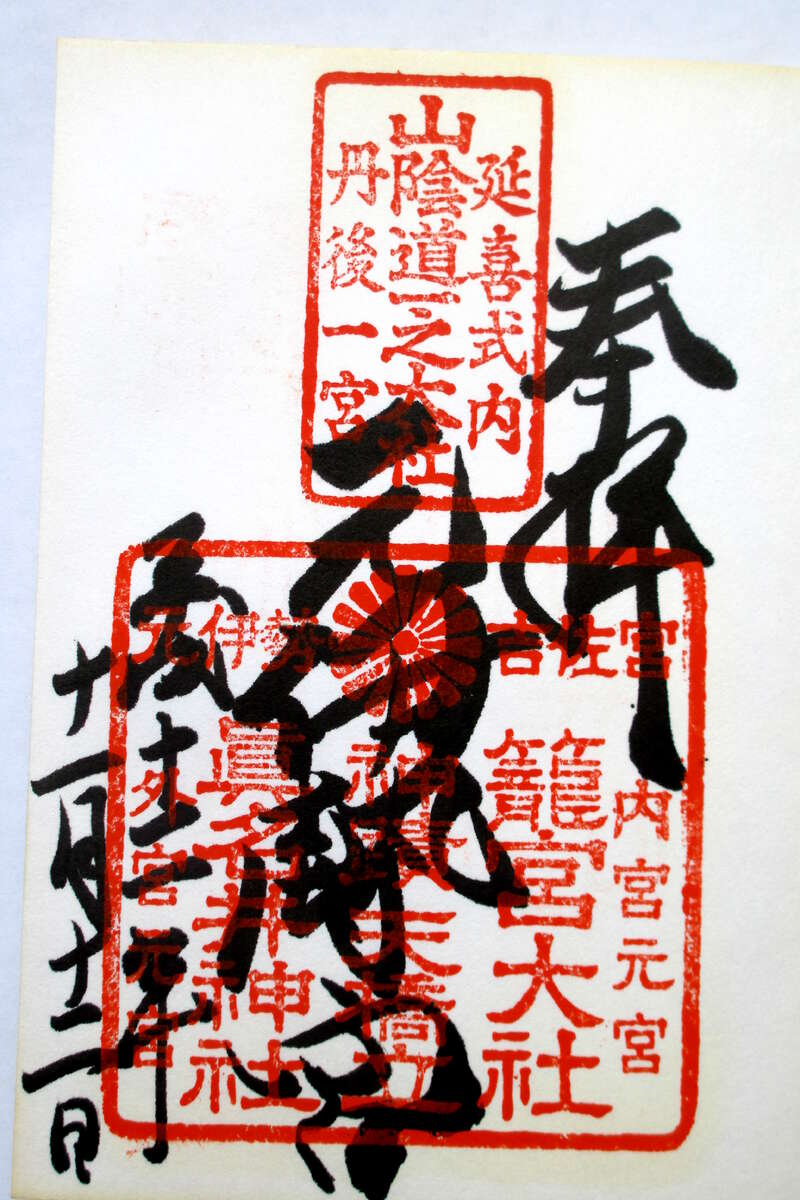 奉拝
延喜式内
山陰道一之大社
丹後一宮
元伊勢 吉佐宮
内宮元宮
籠宮大社
神蹟天橋立
眞名井神社
外宮元宮
十一月十二日